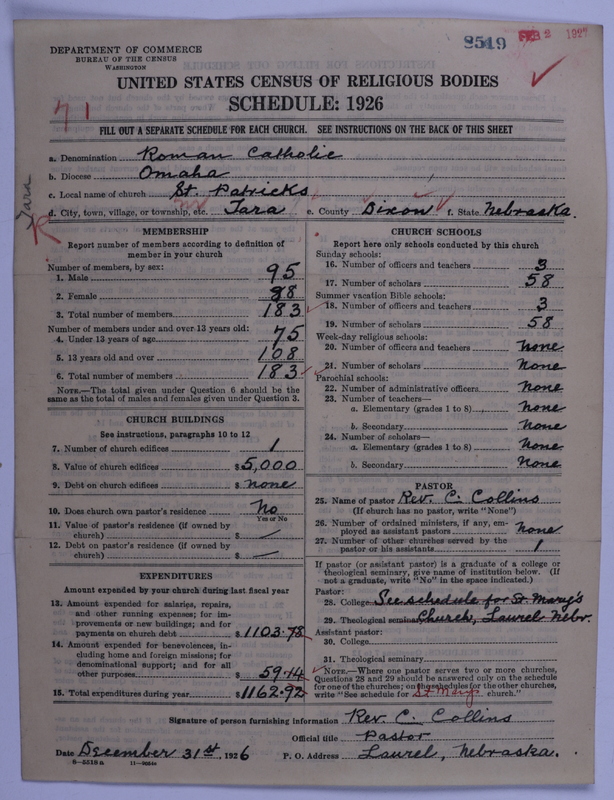 8519
FEB 2 1927
DEPARTMENT OF COMMERCE
BUREAU OF THE CENSUS
WASHINGTON
UNITED STATES CENSUS OF RELIGIOUS BODIES
SCHEDULE: 1926
71
FILL OUT A SEPARATE SCHEDULE FOR EACH CHURCH. SEE INSTRUCTIONS ON THE BACK OF THIS SHEET
a. Denomination Roman Catholic
b. Diocese Omaha
c. Local name of church St. Patricks
d. City, town, village, or township, etc. Tara e. County Dixon f. State Nebraska.
Tara
R
MEMBERSHIP
Report number of members according to definition of member in your church
Number of members, by sex:
1. Male 95
2. Female 88
3. Total number of members 183
Number of members under and over 13 years old:
4. Under 13 years of age 75
5. 13 years old and over 108
6. Total number of members 183
NOTE.—The total given under Question 6 should be the
same as the total of males and females given under Question 3.
CHURCH BUILDINGS
See instructions, paragraphs 10 to 12
7. Number of church edifices 1
8. Value of church edifices $5,000
9. Debt on church edifices $ none
10. Does church own pastor's residence No
Yes or No
11. Value of pastor's residence (if owned by
church) $ —
12. Debt on pastor's residence (if owned by
church) $ —
EXPENDITURES
Amount expended by your church during last fiscal year
13. Amount expended for salaries, repairs,
and other running expenses; for im-
provements or new buildings; and for
payments on church debt $1103.78
14. Amount expended for benevolences, in-
cluding home and foreign missions; for
denominational support; and for all
other purposes $ 59.14
15. Total expenditures during year $1162.92
CHURCH SCHOOLS
Report here only schools conducted by this church
Sunday schools:
16. Number of officers and teachers 3
17. Number of scholars 58
Summer vacation Bible schools:
18. Number of officers and teachers 3
19. Number of scholars 58
Week-day religious schools:
20. Number of officers and teachers none
21. Number of scholars none
Parochial schools:
22. Number of administrative officers none
23. Number of teachers—
a. Elementary (grades 1 to 8) none
b. Secondary none
24. Number of scholars—
a. Elementary (grades 1 to 8) none
b. Secondary none
PASTOR
25. Name of pastor Rev. C. Collins
(If church has no pastor, write "None")
26. Number of ordained ministers, if any, em-
ployed as assistant pastors none
27. Number of other churches served by the
pastor or his assistants 1
If pastor (or assistant pastor) is a graduate of a college or
theological seminary, give name of institution below. (If
not a graduate, write "No" in the space indicated.)
Pastor:
28. College See schedule for St. Mary's
29. Theological seminary Church, Laurel Nebr.
Assistant pastor:
30. College
31. Theological seminary
NOTE.—Where one pastor serves two or more churches,
Questions 28 and 29 should be answered only on the schedule
for one of the churches; on the schedules for the other churches,
write "See schedule for St Mary's church."
Signature of person furnishing information Rev. C. Collins
Official title Pastor
Date December 31st, 1926 P. O. Address Laurel, Nebraska.
8—5518a